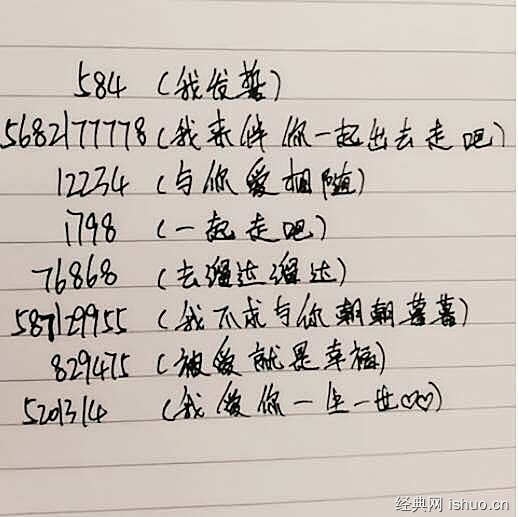 584 (我发誓)
5682177778 (我来伴你一起出去走吧)
12234 (与你爱相随)
1798 (一起走吧)
76868 (去溜达溜达)
587129955 (我不求与你朝朝暮暮)
829475 (被爱就是幸福)
5201314 (我爱你一生一世♡♡)
经典网 ishuo.cn